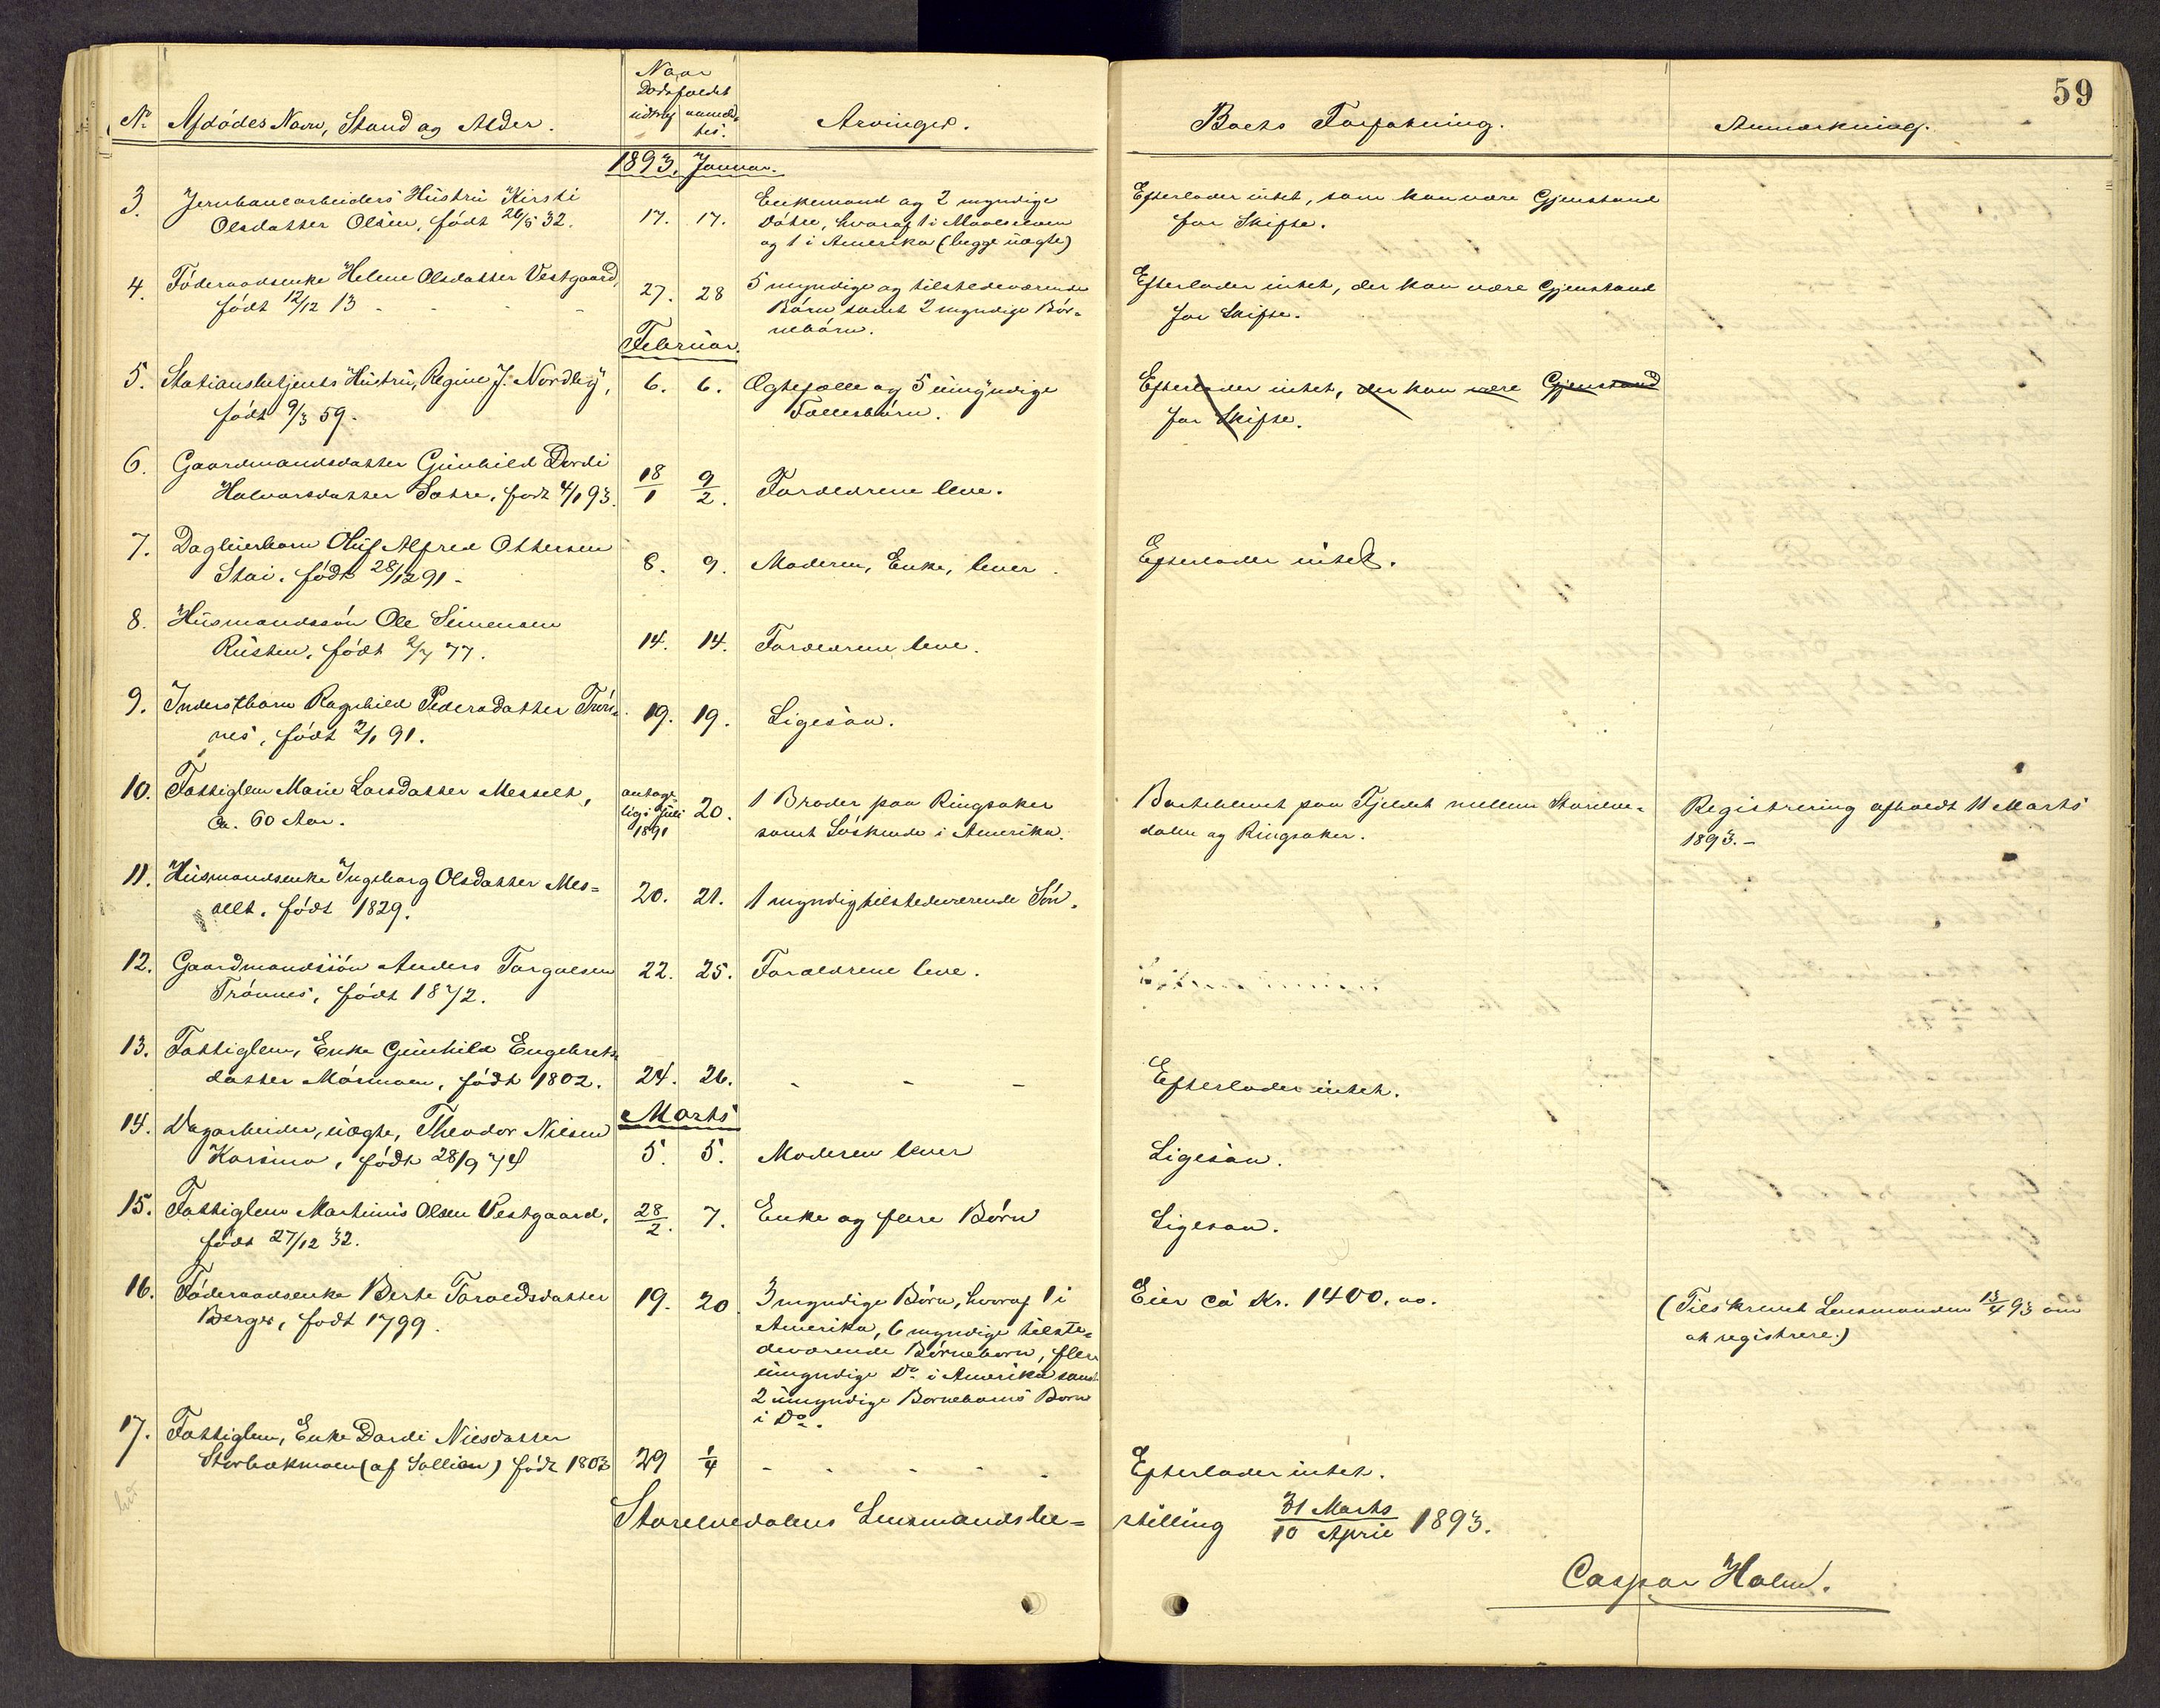 59
Naar
Dødsfaldet
indtraf anmeld-
tes.
No Afdødes Navn, Stand og Alder.
Arvinger.
Boets Forfatning.
Anmærkning.
1893, Januar.
3. Jernbanearbeiders Hustru Kirsti
Olsdatter Olsen, født 26/5 32.
17. 17.
Enkemand og 2 myndige
Døtre, hvoraf 1 i Maalselven
og 1 i Amerika (begge uægte)
Efterlader intet, som kan være Gjenstand
for Skifte.
4. Føderaadsenke Helene Olsdatter Vestgaard,
født 12/12 13 - - -
27. 28
5 myndige og tilstedeværende
Børn samt 2 myndige Bør-
nebørn.
Efterlader intet, der kan være Gjenstand
for Skifte.
Februar.
5. Stationsbetjents Hustru, Regine J. Nordby,
født 9/3 59.
6. 6.
Ægtefælle og 5 umyndige
Fællesbørn.
Efterlader intet, der kan være Gjenstand
for Skifte.
6. Gaardmandsdatter Gunhild Dordi
Halvorsdatter Sætre, født 4/1 93.
18/1 9/2.
Forældrene leve.
7. Dagleierbarn Oluf Alfred Ottersen
Stai, født 28/12 91 -
8. 9.
Moderen, Enke, lever.
Efterlader intet.
8. Husmandssøn Ole Simensen
Rusten, født 2/7 77.
14. 14.
Forældrene leve.
9. Inderstbarn Ragnhild Pedersdatter Trøn-
nes, født 2/1 91.
19. 19.
Ligesaa.
10. Fattiglem Marie Larsdatter Messelt,
Ca. 60 Aar.
antage-
lig i Juli
1891
20.
1 Broder paa Ringsaker
samt Søskende i Amerika.
Bortblevet paa Fjeldet mellem Storelve-
dalen og Ringsaker.
Registrering afholdt 11 Marts
1893. -
11. Husmandsenke Ingeborg Olsdatter Mes-
selt, født 1829.
20. 21.
1 myndig tilstedeværende Søn.
12. Gaardmandssøn Anders Torgalsen
Trønnes, født 1872.
22. 25.
Forældrene leve.
13. Fattiglem, Enke Gunhild Engebrets-
datter Mørmoen, født 1802.
24. 26.
- - -
Efterlader intet.
Marts
14. Dagarbeider, uægte, Theodor Nilsen
Korsmo, født 28/9 74
5. 5.
Moderen lever
Ligesaa.
15. Fattiglem Martinus Olsen Vestgaard,
født 27/12 32.
28/2. 7.
Enke og flere Børn
Ligesaa.
16. Føderaadsenke Berte Taraldsdatter
Berger, født 1799.
19. 20.
3 myndige Børn, hvoraf 1 i
Amerika, 6 myndige tilste-
deværende Børnebørn, flere
umyndige Do i Amerika samt
2 umyndige Børnebørns Børn
i Do.
Eier ca Kr. 1400.00.
(Tilskrevet Lensmanden 13/4 93 om
at registrere.)
17. Fattiglem, Enke Dordi Nilsdatter
Storbækmoen (af Sollien) født 1803
29 1/4
- - - - -
Efterlader intet.
Storelvedalens Lensmandsbe-
stilling 31 Marts/10 April 1893.
Caspar Holm.